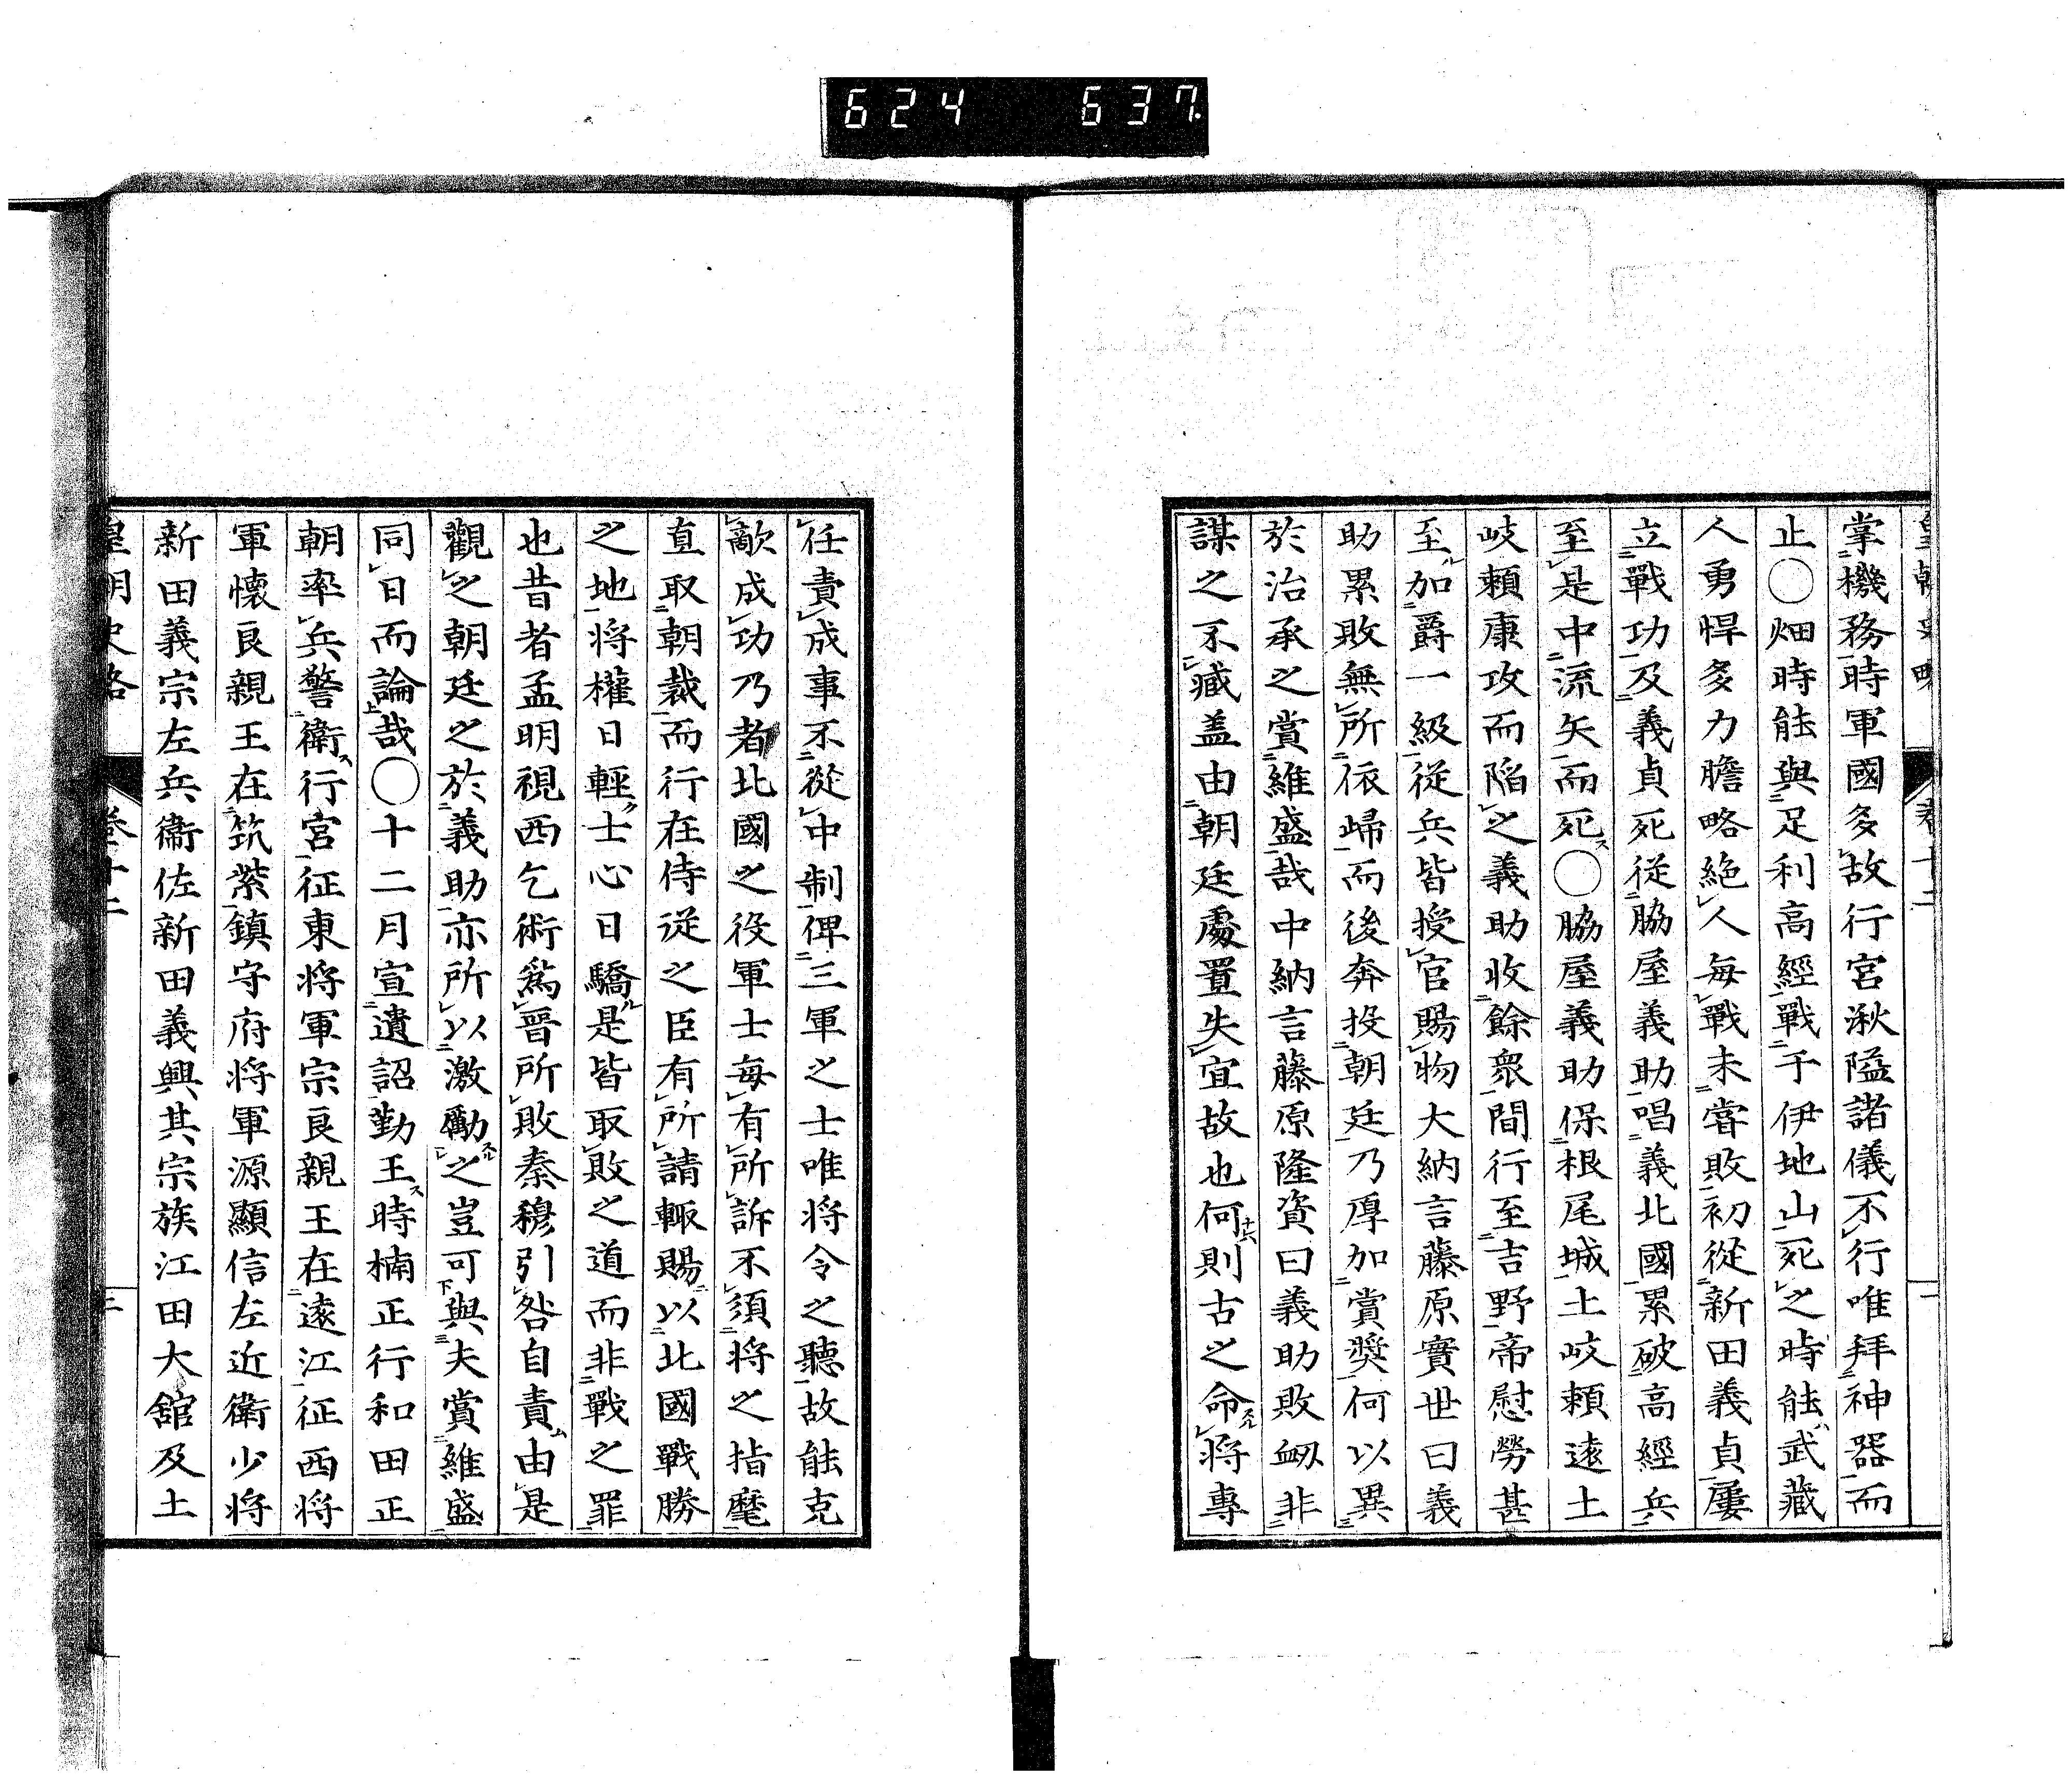 624 637
掌機務時軍國多故行宮湫隘諸儀不行唯拜神器而
止〇畑時能與足利高經戰于伊地山死之時能武藏
人勇悍多力膽略絶人每戰未嘗敗初從新田義貞屢
立戰功及義貞死從脇屋義助唱義北國累破高經兵
至是中流矢而死〇脇屋義助保根尾城土岐頼遠土
岐頼康攻而陷之義助收餘衆間行至吉野帝慰勞甚
至加爵一級從兵皆授官賜物大納言藤原實世曰義
助累敗無所依歸而後奔投朝廷乃厚加賞奬何以異
於治承之賞維盛哉中納言藤原隆資曰義助敗衂非
謀之不臧盖由朝廷處置失宜故也何則古之命將專
任責成事不從中制俾三軍之士唯将令之聽故能克
敵成功乃者北國之役軍士每有所訴不須將之指麾
直取朝裁而行在侍從之臣有所請輙賜以北國戰勝
之地将權日輕士心日驕是皆取敗之道而非戰之罪
也昔者孟明視西乞術爲晉所敗秦穆引咎自責由是
觀之朝廷之於義助亦所以激勵之豈可與夫賞維盛
同日而論哉〇十二月宣遺詔勤王時楠正行和田正
朝率兵警衛行宮征東将軍宗良親王在遠江征西將
軍懷良親王在筑紫鎮守府将軍源顯信左近衛少将
新田義宗左兵衞佐新田義興其宗族江田大舘及土
皇朝史略 卷十二 二